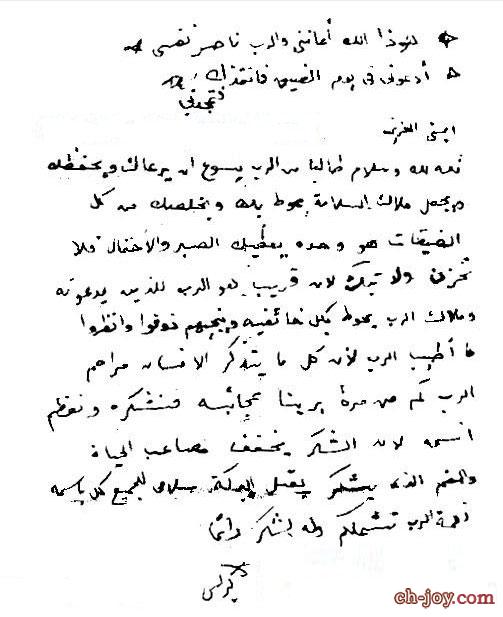 هوذا الله أعانني والرب ناصر نفسي
أدعوني في يوم الضيق فانقذك
فتمجدني
ابني العزيز
نعمه لك وسلام طالبا من الرب يسوع ان يرعاك ويحفظك
ويجعل ملاك السلامة يحوط بك ويخلصك من كل
الضيقات هو وحده يعطيك الصبر والاحتمال فلا
تحزن ولا تبك لان قريب هو الرب للذين يدعونه
وملاك الرب يحوط بكل خائفيه وينجيهم ذوقوا وانظروا
ما أطيب الرب لأن كل ما يتذكر الانسان مراحم
الرب كم من مرة يرينا عجائبه فنشكره ونعظم
اسمه لان الشكر يخفف مصاعب الحياة
والفم الذى يشكر يقبل البركة سلامى للجميع كل باسمه
نعمة الرب تشملكم وله الشكر دائما
كيرلس
ch-joy.com